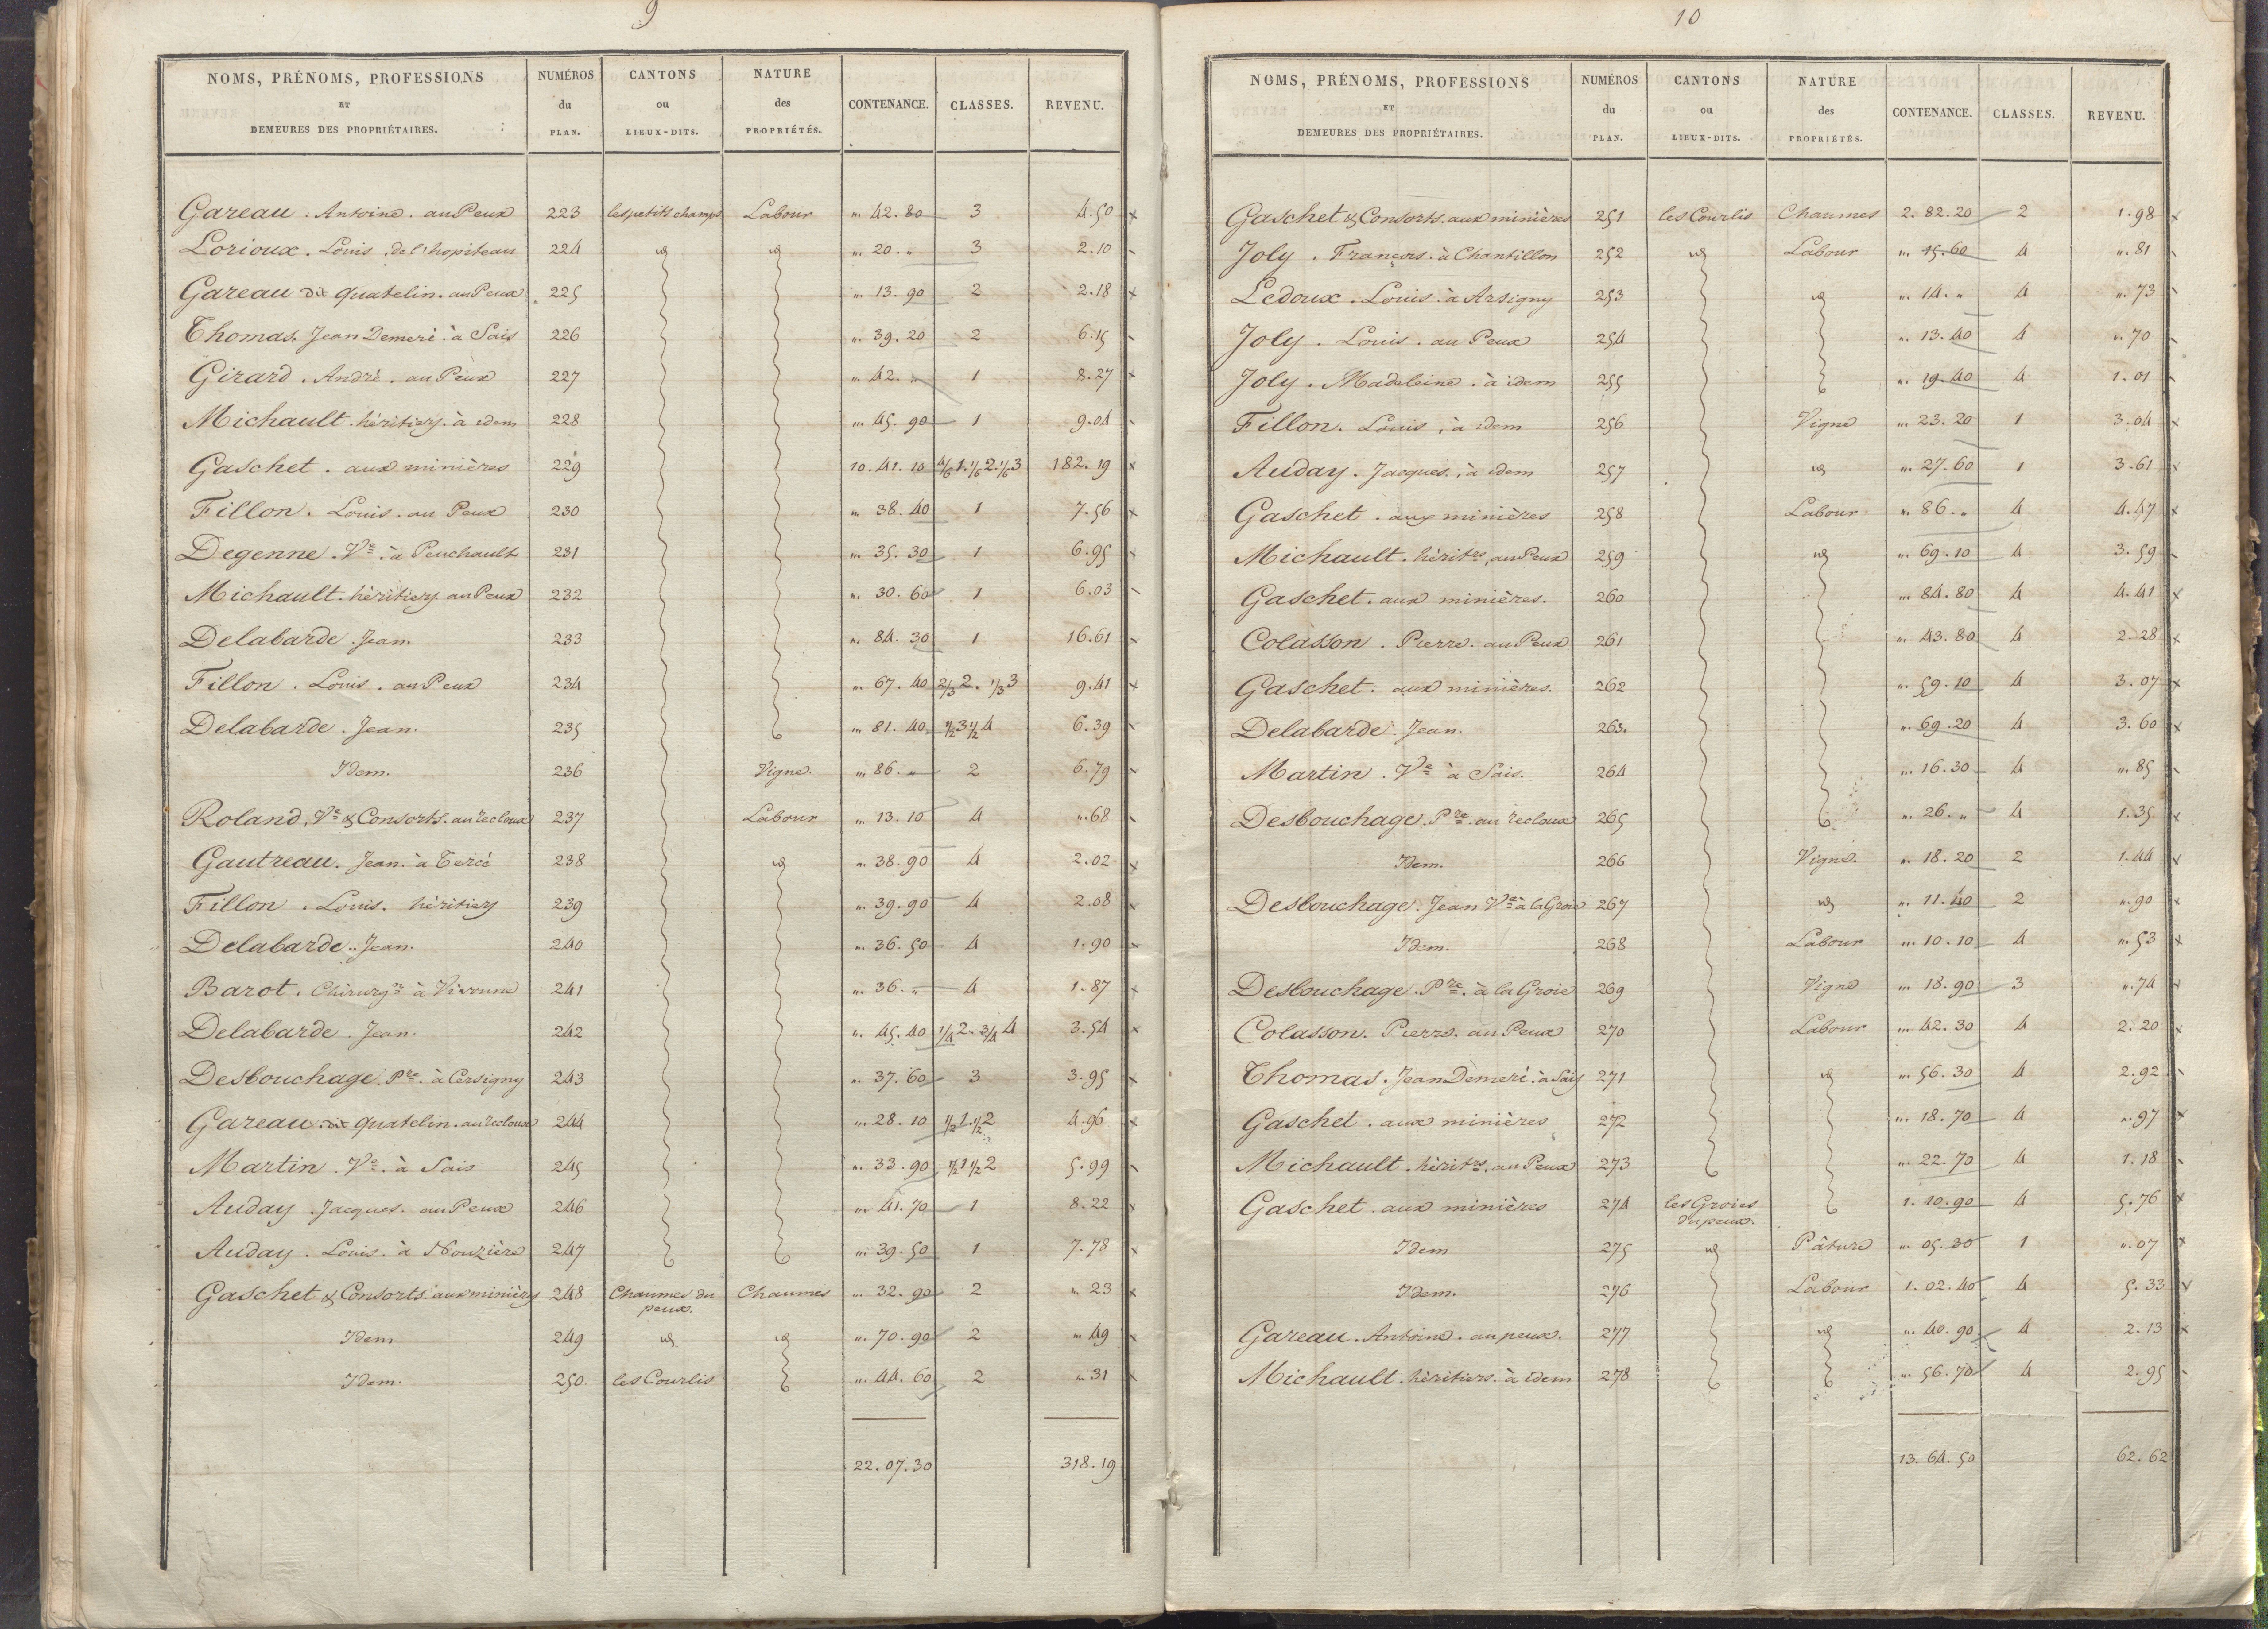 9
NOMS, PRÉNOMS, PROFESSIONS ET DEMEURES DES PROPRIÉTAIRES. NUMÉROS du PLAN. CANTONS ou LIEUX-DITS. NATURE des PROPRIÉTÉS. CONTENANCE. CLASSES. REVENU.
Gareau . Antoine . au Peux 223 les petits champs Labour „. 42. 80 3 4. 50 x
Lorioux . Louis . de l'hopiteau 224 id id „. 20. „ 3 2. 10
Gareau dit quatelin. au Peux 225 „. 13. 90 2 2. 18 x
Thomas. Jean Demeré. à Sais 226 „. 39. 20 2 6. 15
Girard . André . au Peux 227 „. 42. „ 1 8. 27 x
Michault . héritiers. à idem 228 „. 45. 90 1 9. 04
Gaschet . aux minières 229 10. 41. 10 4/6 1. 1/6 2. 1/6 3 182. 19 x
Fillon . Louis . au Peux 230 „. 38. 40 1 7. 56 x
Degenne . Ve . à Peuchault 231 „. 35. 30 1 6. 95 x
Michault . héritiers. au Peux 232 „. 30. 60 1 6. 03
Delabarde . Jean. 233 „. 84. 30 1 16. 61
Fillon . Louis . au Peux 234 „. 67. 40 2/3 2. 1/3 3 9. 41 x
Delabarde . Jean. 235 „. 81. 40 1/2 3 1/2 4 6. 39
Idem. 236 Vigne. „. 86. „ 2 6. 79
Roland, Ve & Consorts. au recloux 237 Labour „. 13. 10 4 „. 68
Gautreau. Jean. à Tercé 238 id „. 38. 90 4 2. 02 x
Fillon . Louis. héritiers 239 „. 39. 90 4 2. 08 x
Delabarde . Jean. 240 „. 36. 50 4 1. 90
Barot . Chirurgn à Vivonne 241 „. 36. „ 4 1. 87 x
Delabarde . Jean. 242 „. 45. 40 1/4 2. 3/4 4 3. 54 x
Desbouchage. Pre. à Cersigny 243 „. 37. 60 3 3. 95 x
Gareau dit quatelin. au recloux 244 „. 28. 10 1/2 1. 1/2 2 4. 96 x
Martin . Ve . à Sais 245 „. 33. 90 1/2 1 1/2 2 5. 99
Auday . Jacques. au Peux 246 „. 41. 70 1 8. 22 x
Auday . Louis. à Nouzière 247 „. 39. 50 1 7. 78 x
Gaschet & Consorts. aux minières 248 Chaumes du peux. Chaumes „. 32. 90 2 „. 23 x
Idem 249 id id „. 70. 90 2 „. 49 x
Idem. 250. les Courlis „. 44. 60 2 „. 31 x
22. 07. 30 318. 19
10
NOMS, PRÉNOMS, PROFESSIONS ET DEMEURES DES PROPRIÉTAIRES. NUMÉROS du PLAN. CANTONS ou LIEUX-DITS. NATURE des PROPRIÉTÉS. CONTENANCE. CLASSES. REVENU.
Gaschet & Consorts. aux minières 251 les Courlis Chaumes 2. 82. 20 2 1. 98 x
Joly . François. à Chantillon 252 id Labour „. 15. 60 4 „. 81
Ledoux . Louis. à Arsigny 253 id „. 14. „ 4 „. 73
Joly . Louis . au Peux 254 „. 13. 40 4 „. 70
Joly . Madeleine . à idem 255 „. 19. 40 4 1. 01
Fillon . Louis , à idem 256 Vigne „. 23. 20 1 3. 04 x
Auday . Jacques , à idem 257 id „. 27. 60 1 3. 61 x
Gaschet . aux minières 258 Labour „. 86. „ 4 4. 47 x
Michault . hérits. au Peux 259 id „. 69. 10 4 3. 59
Gaschet . aux minières. 260 „. 84. 80 4 4. 41 x
Colasson . Pierre. au Peux 261 „. 43. 80 4 2. 28 x
Gaschet . aux minières. 262 „. 59. 10 4 3. 07 x
Delabarde . Jean. 263. „. 69. 20 4 3. 60 x
Martin . Ve à Sais. 264 „. 16. 30 4 „. 85
Desbouchage. Pre. au recloux 265 „. 26. „ 4 1. 35 x
Idem. 266 Vigne. „. 18. 20 2 1. 44 x
Desbouchage. Jean Ve à la Groie 267 id „. 11. 40 2 „. 90 x
Idem. 268 Labour „. 10. 10 4 „. 53 x
Desbouchage. Pre. à la Groie 269 Vigne „. 18. 90 3 „. 74 x
Colasson . Pierre. au Peux 270 Labour „. 42. 30 4 2. 20 x
Thomas . Jean Demeré. à Sais 271 id „. 56. 30 4 2. 92
Gaschet . aux minières 272 „. 18. 70 4 „. 97 x
Michault . hérits. au Peux 273 „. 22. 70 4 1. 18
Gaschet . aux minières 274 les Groies du peux. 1. 10. 90 4 5. 76 x
Idem 275 id Pâture „. 05. 30 1 „. 07 x
Idem. 276 Labour 1. 02. 40 4 5. 33 x
Gareau . Antoine . au peux. 277 id „. 40. 90 4 2. 13 x
Michault . héritiers. à idem 278 „. 56. 70 4 2. 95
13. 64. 50 62. 62